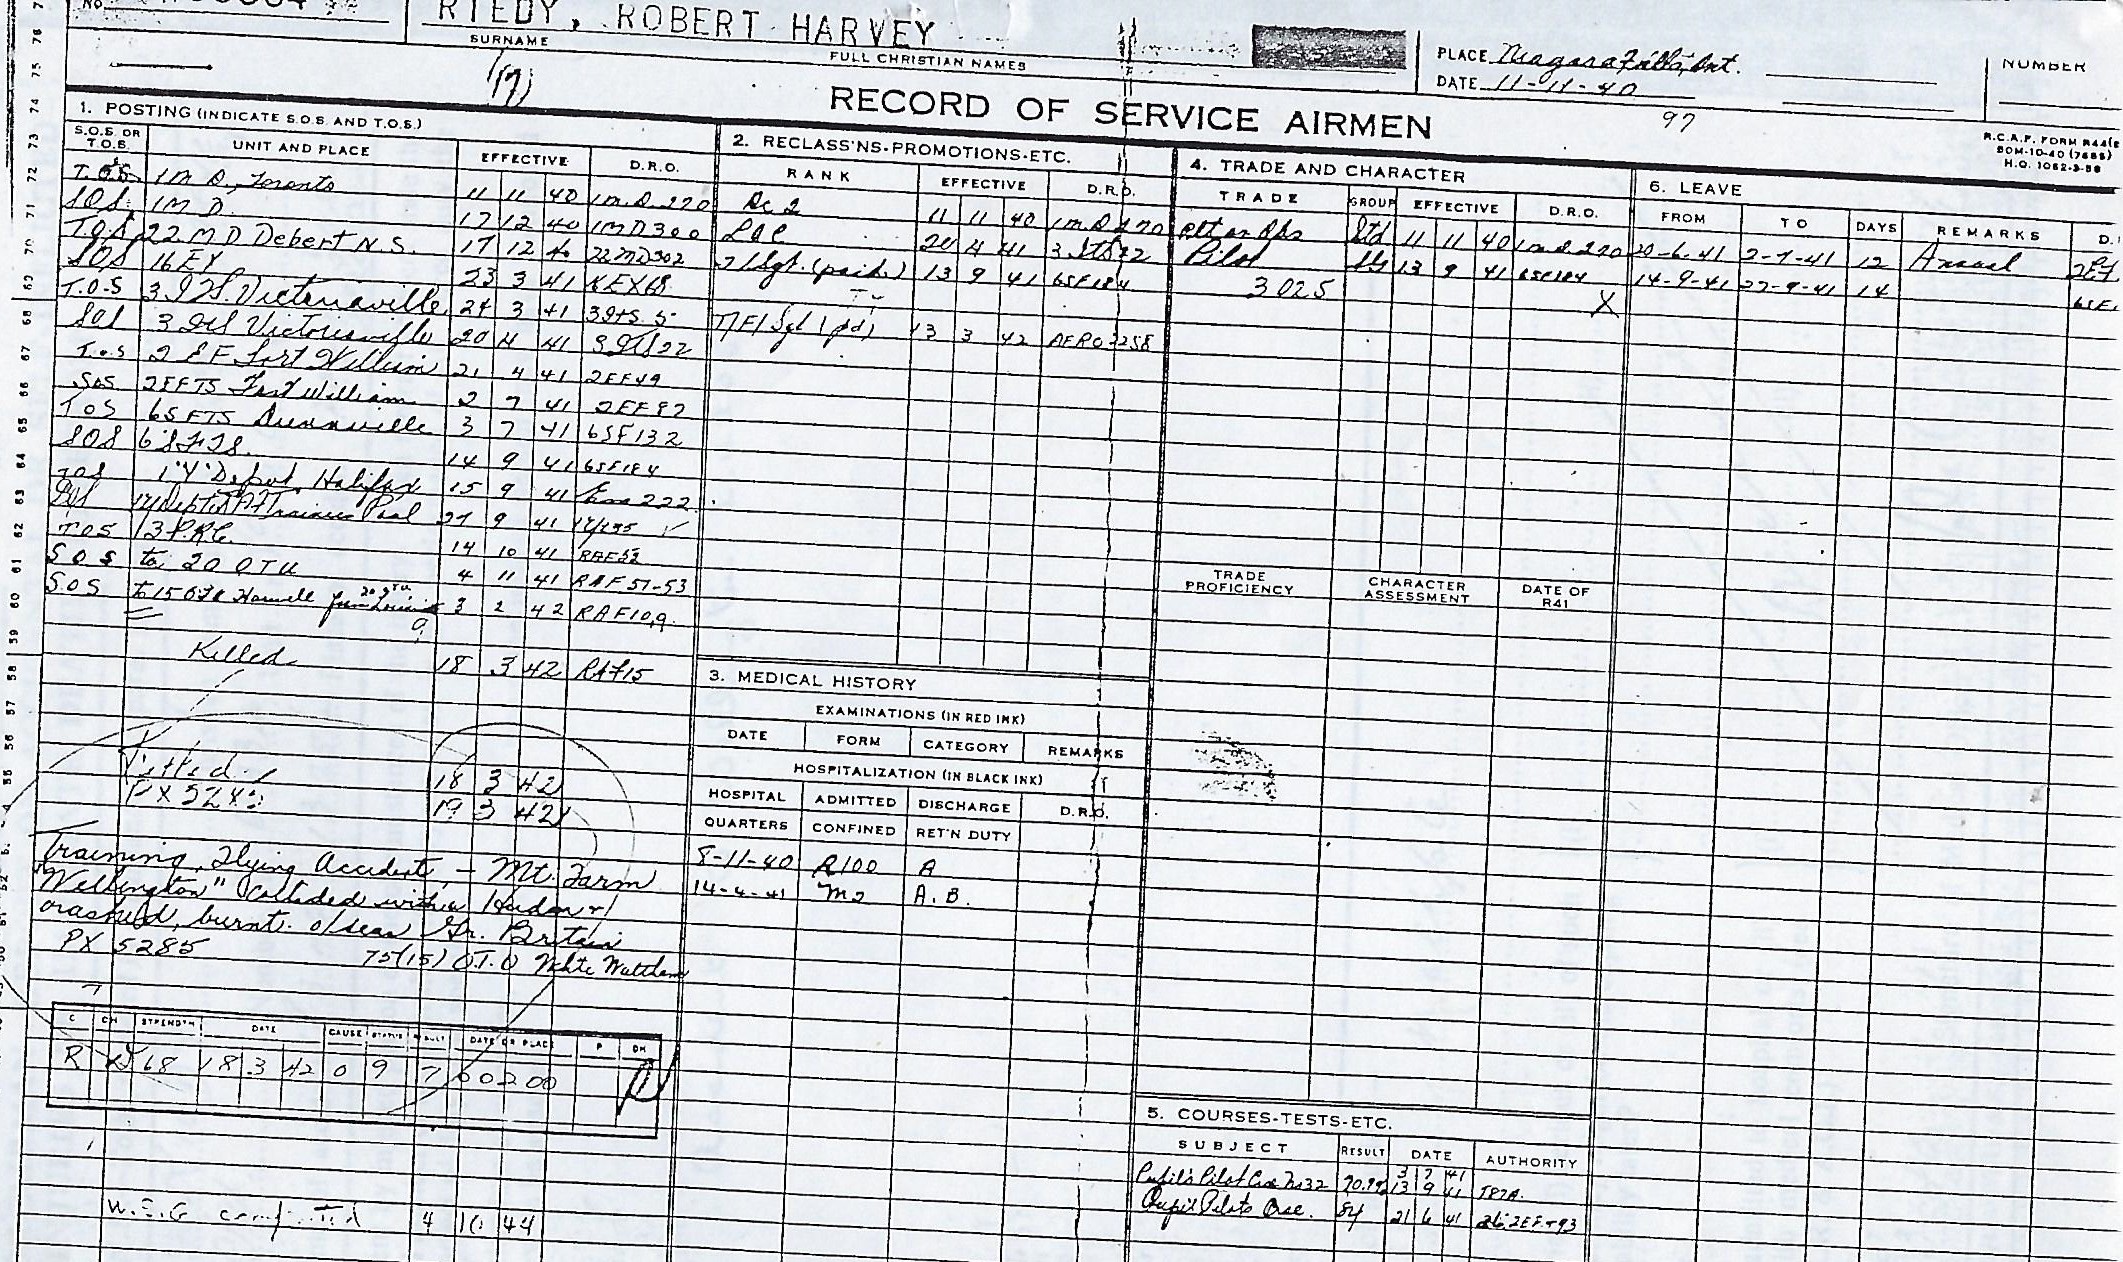 No
RIEDY, ROBERT HARVEY
SURNAME
FULL CHRISTIAN NAMES
PLACE Niagara Falls, Ont.
DATE 11-11-40
NUMBER
(17)
RECORD OF SERVICE AIRMEN
97
R.C.A.F. FORM R44
50M-10-40 (7655)
H.Q. 1062-3-58
1. POSTING (INDICATE S.O.S. AND T.O.S.)
S.O.S. OR T.O.S. UNIT AND PLACE EFFECTIVE D.R.O.
T.O.S 1 M D, Toronto 11 11 40 1 M.D. 270
SOS 1 M D. 17 12 40 1MD300
T.O.S 22 M D Debert N.S. 17 12 40 22MD302
SOS 16 EX 23 3 41 16EX68
T.O.S 3 ITS. Victoriaville 24 3 41 3 ITS. 5
SOS 3 ITS Victoriaville 20 4 41 3 ITS 22
T.O.S 2 E F Fort William 21 4 41 2EF49
SOS 2EFTS Fort William 2 7 41 2EF97
TOS 6SFTS Dunnville 3 7 41 6SF132
SOS 6 SFTS. 14 9 41 6SF184
TOS 1 "Y" Depot, Halifax 15 9 41 222
SOS 1Y Depot RAF Trainees Pool 27 9 41
T.O.S 3 P.R.C. 14 10 41 RAF52
S.O.S to 20 OTU 4 11 41 RAF 51-53
S.O.S to 15 OTU Harwell from 20 OTU 3 2 42 RAF 10,9
Killed 18 3 42 RAF15
Killed 18 3 42
PX 19 3 42
Training, Flying Accident, - Mt. Farm
"Wellington" Collided with a Hudson &
crashed, burnt. o/seas Gr. Britain
PX 5285 75(15) O.T.U White Waltham
C CH STRENGTH DATE CAUSE STATUS RESULT DATE OR PLACE P DH
R 68 18 3 42 0 9 7 60200
W.S.G computed 4 10 44
2. RECLASS'NS-PROMOTIONS-ETC.
RANK EFFECTIVE D.R.O.
Ac 2 11 11 40 1 M.D 270
LAC 20 4 41 3 ITS 22
T/Sgt. (paid.) 13 9 41 6SF184
T/F/Sgt (pd) 13 3 42 AFRO 3258
3. MEDICAL HISTORY
EXAMINATIONS (IN RED INK)
DATE FORM CATEGORY REMARKS
HOSPITALIZATION (IN BLACK INK)
HOSPITAL ADMITTED DISCHARGE D.R.O.
QUARTERS CONFINED RET'N DUTY
8-11-40 R100 A
14-4-41 M2 A.B.
4. TRADE AND CHARACTER
TRADE GROUP EFFECTIVE D.R.O.
Plt or Obs Std 11 11 40 1 M.D. 270
Pilot 13 9 41 6SF184
3025 X
TRADE PROFICIENCY CHARACTER ASSESSMENT DATE OF R41
5. COURSES-TESTS-ETC.
SUBJECT RESULT DATE AUTHORITY
3 7 41
Pupils Pilot Crse No 32 13 9 41 T87A.
Pupil Pilots Crse. 84 21 6 41
6. LEAVE
FROM TO DAYS REMARKS
20-6-41 2-7-41 12 Annual
14-9-41 27-9-41 14